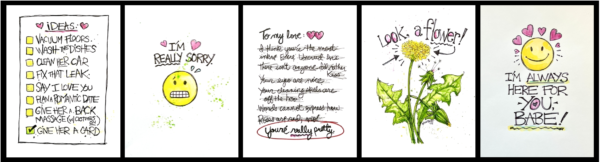 IDEAS:
VACUUM FLOORS.
WASH THE DISHES
CLEAN HER CAR
FIX THAT LEAK.
SAY I LOVE YOU
PLAN A ROMANTIC DATE
GIVE HER A BACK
MASSAGE
GIVE HER A CARD
I'M
REALLY SORRY.
To my love:
I think you're the most
Your eyes are nice
Words cannot express how
Roses are red,
you're really pretty.
Look, a flower!
I'M ALWAYS
HERE FOR
-YOU,-
BABE!